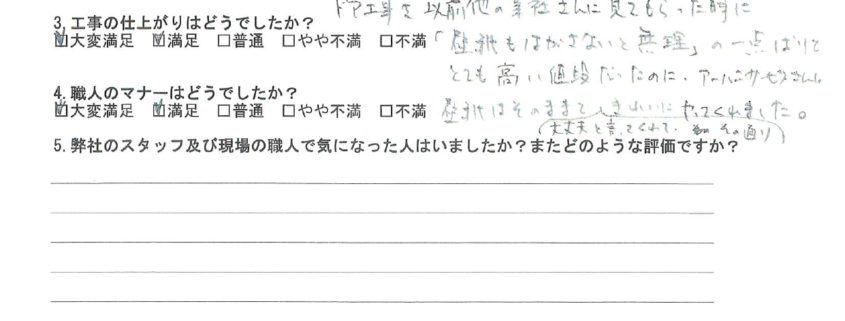 ドア工事を以前他の業社さんに見てもらった時に
3. 工事の仕上がりはどうでしたか？
☑大変満足 ☑満足 □普通 □やや不満 □不満
「壁紙もはがさないと無理」の一点ばりで
とても高い値段だったのに、アーバンサービスさんは
4. 職人のマナーはどうでしたか？
☑大変満足 ☑満足 □普通 □やや不満 □不満
壁紙はそのままで、きれいにやってくれました。
(大丈夫と言ってくれて、その通り)
5. 弊社のスタッフ及び現場の職人で気になった人はいましたか？またどのような評価ですか？